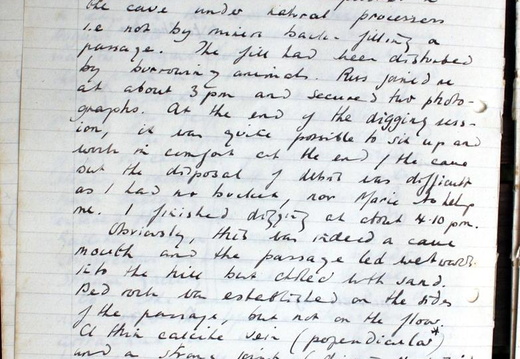 the cave under natural processes
i.e not by miner back-filling a
passage. The fill had been disturbed
by burrowing animals. Russ joined me
at about 3 pm and secured two photo-
graphs. At the end of the digging sess-
ion, it was quite possible to sit up and
work in comfort at the end of the cave
but the disposal of debris was difficult
as I had no bucket, nor Marie to help
me. I finished digging at about 4.10 pm.
Obviously, this was indeed a cave
mouth and the passage led westwards
into the hill but choked with sand.
Bed rock was established on the sides
of the passage, but not on the floor.
A thin calcite vein (perpendicular*)
and a strong